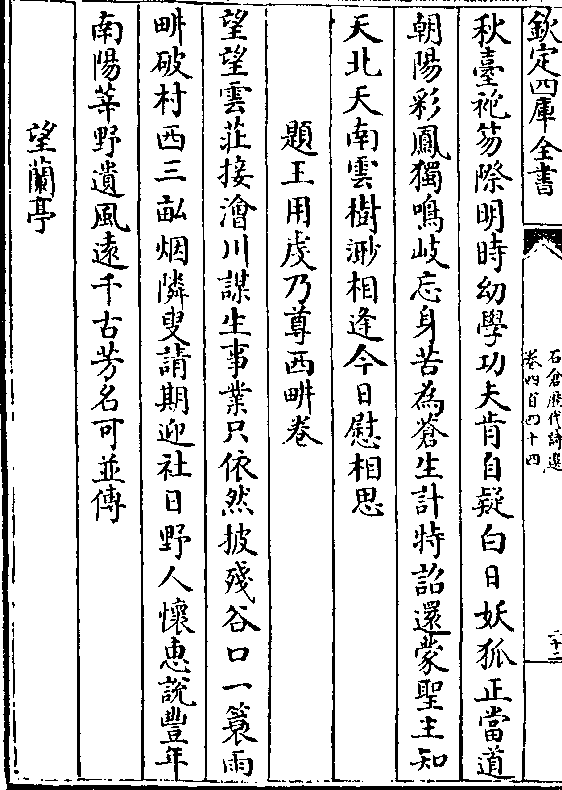 欽定四庫全書
石倉歷代詩選
卷四百四十四
二十二
秋臺袍笏際明時幼學功夫肯自疑白日妖狐正當道
朝陽彩鳳獨鳴岐忘身苦為蒼生計特詔還蒙聖主知
天北天南雲樹渺相逢今日慰相思
題王用虔乃尊西畊卷
望望雲莊接澮川謀生事業只依然披殘谷口一簑雨
畊破村西三畝烟隣叟請期迎社日野人懷惠說豐年
南陽莘野遺風遠千古芳名可並傳
望蘭亭